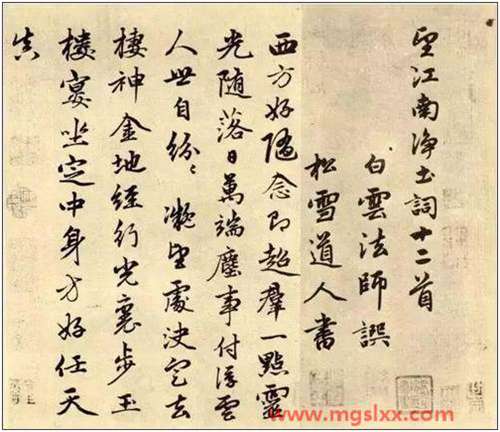 望江南净土詞十二首
白雲法師譔
松雪道人書
西方好隨念即超羣一點靈
光随落日萬端塵事付浮雲
人世自紛々凝望處決定去
棲神金地經行光裏步玉
樓宴坐定中身方好任天
真
www.mgslxx.com